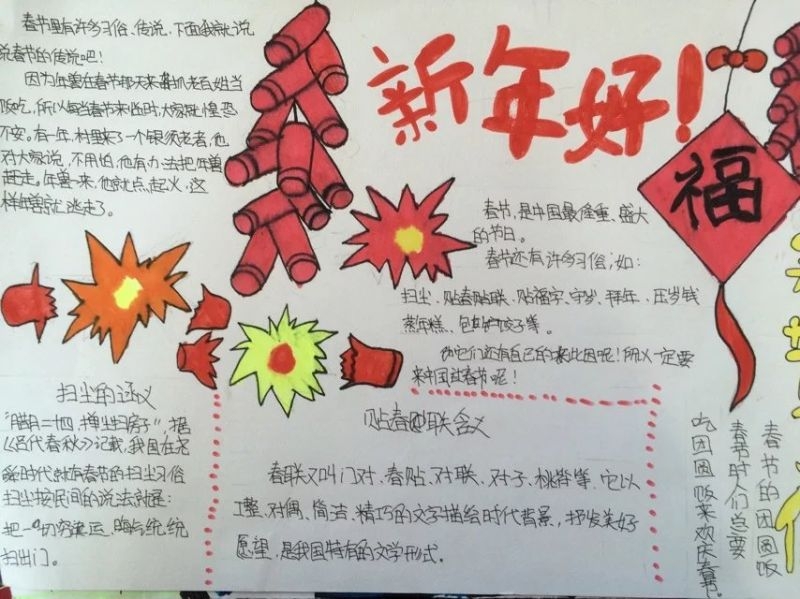 春节里有许多习俗、传说,下面我就说
说春节的传说吧!
因为年兽在春节那天来抓老百姓当
饭吃,所以每当春节来临时,大家就惶恐
不安。有一年,村里来了一个银须老者,他
对大家说,不用怕,他有办法把年兽
赶走。年兽一来,他就点起火,这
样年兽就逃走了。
新年好!
福
春节,是中国最隆重、盛大
的节日。
春节还有许多习俗,如:
扫尘、贴春贴联、贴福字、守岁、拜年、压岁钱
蒸年糕、包饺子等。
它们还有自己的来比因呢!所以一定要
来中国过春节呢!
扫尘的涵义
“腊月二十四,掸尘扫房子”,据
《吕代春秋》记载,我国在尧
舜时代就有春节的扫尘习俗
扫尘按民间的说法就是:
把一切穷运、晦气统统
扫出门。
贴春联含义
春联又叫门对、春贴、对联、对子、桃符等,它以
工整、对偶、简洁、精巧的文字描绘时代背景,抒发美好
愿望,是我国特有的文学形式。
春节的团圆饭
春节时人们总要
吃团圆饭来欢庆春节。